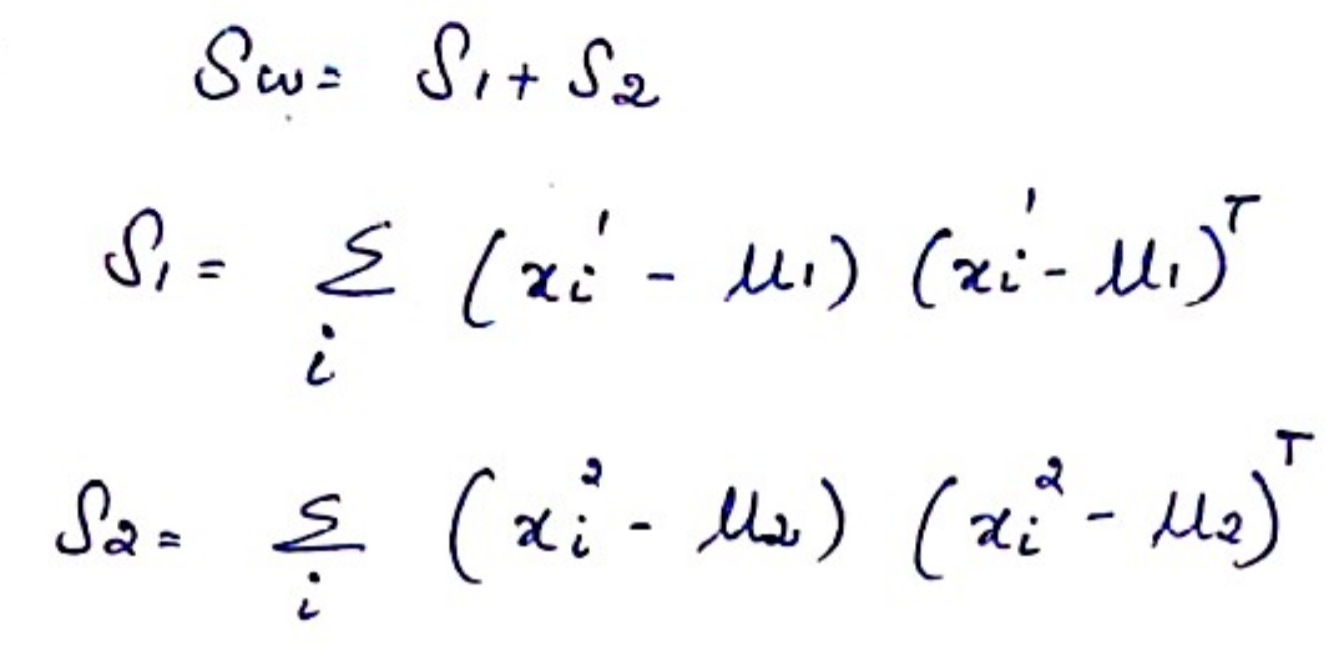 Sw = S₁ + S₂
S₁ = Σᵢ (xᵢ¹ - μ₁) (xᵢ¹ - μ₁)ᵀ
S₂ = Σᵢ (xᵢ² - μ₂) (xᵢ² - μ₂)ᵀ